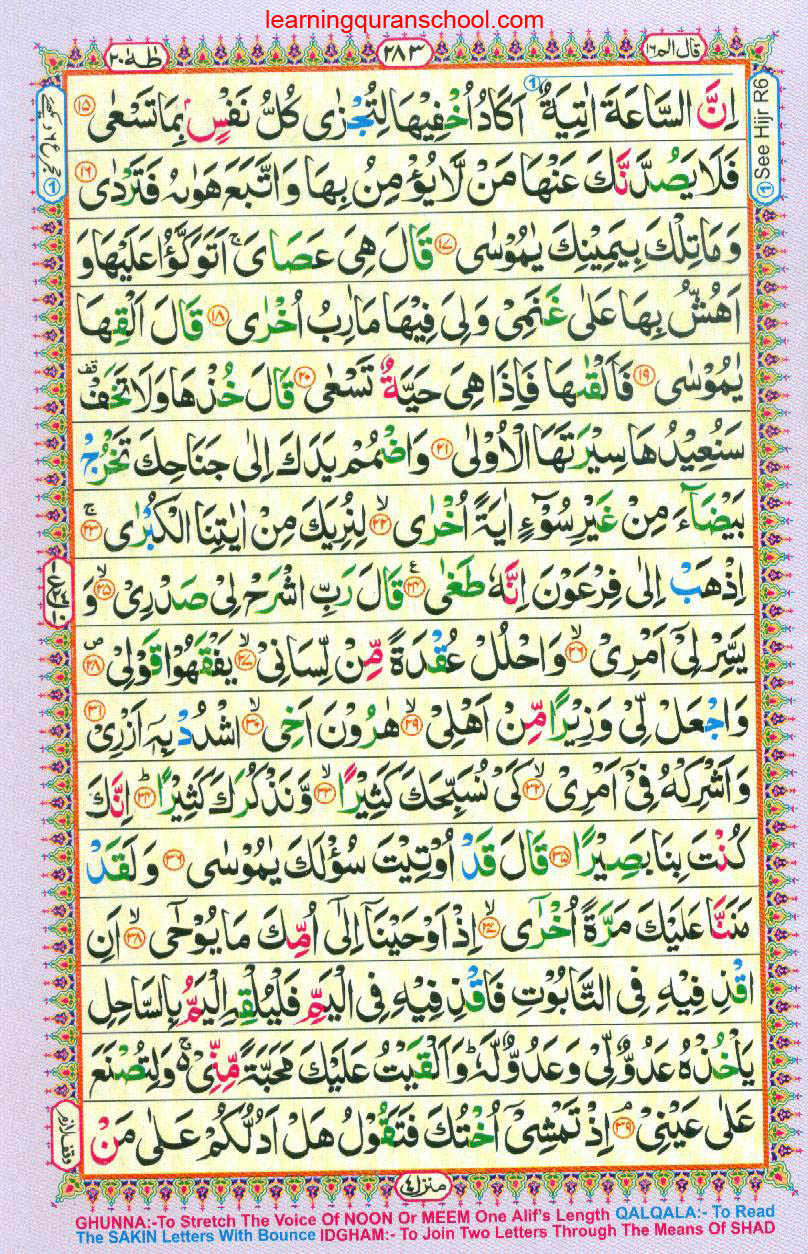 learningquranschool.com
قال الم ١٦
٢٨٣
طٰهٰ ٢٠
اِنَّ السَّاعَةَ اٰتِيَةٌ اَكَادُ اُخْفِيْهَا لِتُجْزٰى كُلُّ نَفْسٍۭ بِمَا تَسْعٰى ۝١٥
فَلَا يَصُدَّنَّكَ عَنْهَا مَنْ لَّا يُؤْمِنُ بِهَا وَاتَّبَعَ هَوٰىهُ فَتَرْدٰى ۝١٦
وَمَا تِلْكَ بِيَمِيْنِكَ يٰمُوْسٰى ۝١٧ قَالَ هِىَ عَصَاىَ ۚ اَتَوَكَّؤُا عَلَيْهَا وَ
اَهُشُّ بِهَا عَلٰى غَنَمِىْ وَلِىَ فِيْهَا مَاٰرِبُ اُخْرٰى ۝١٨ قَالَ اَلْقِهَا
يٰمُوْسٰى ۝١٩ فَاَلْقٰىهَا فَاِذَا هِىَ حَيَّةٌ تَسْعٰى ۝٢٠ قَالَ خُذْهَا وَلَا تَخَفْ ۥقف
سَنُعِيْدُهَا سِيْرَتَهَا الْاُوْلٰى ۝٢١ وَاضْمُمْ يَدَكَ اِلٰى جَنَاحِكَ تَخْرُجْ
بَيْضَآءَ مِنْ غَيْرِ سُوْٓءٍ اٰيَةً اُخْرٰى ۝٢٢ۙ لِنُرِيَكَ مِنْ اٰيٰتِنَا الْكُبْرٰى ۝٢٣ۚ
اِذْهَبْ اِلٰى فِرْعَوْنَ اِنَّهٗ طَغٰى ۝٢٤ قَالَ رَبِّ اشْرَحْ لِىْ صَدْرِىْ ۝٢٥ۙ وَ
يَسِّرْ لِىْٓ اَمْرِىْ ۝٢٦ۙ وَاحْلُلْ عُقْدَةً مِّنْ لِّسَانِىْ ۝٢٧ۙ يَفْقَهُوْا قَوْلِىْ ۝٢٨ص
وَاجْعَلْ لِّىْ وَزِيْرًا مِّنْ اَهْلِىْ ۝٢٩ۙ هٰرُوْنَ اَخِى ۝٣٠ۙ اشْدُدْ بِهٖٓ اَزْرِىْ ۝٣١ۙ
وَاَشْرِكْهُ فِىْٓ اَمْرِىْ ۝٣٢ۙ كَىْ نُسَبِّحَكَ كَثِيْرًا ۝٣٣ۙ وَّنَذْكُرَكَ كَثِيْرًا ۝٣٤ؕ اِنَّكَ
كُنْتَ بِنَا بَصِيْرًا ۝٣٥ قَالَ قَدْ اُوْتِيْتَ سُؤْلَكَ يٰمُوْسٰى ۝٣٦ وَلَقَدْ
مَنَنَّا عَلَيْكَ مَرَّةً اُخْرٰٓى ۝٣٧ۙ اِذْ اَوْحَيْنَآ اِلٰٓى اُمِّكَ مَا يُوْحٰٓى ۝٣٨ۙ اَنِ
اقْذِفِيْهِ فِى التَّابُوْتِ فَاقْذِفِيْهِ فِى الْيَمِّ فَلْيُلْقِهِ الْيَمُّ بِالسَّاحِلِ
يَاْخُذْهُ عَدُوٌّ لِّىْ وَعَدُوٌّ لَّهٗ ؕ وَاَلْقَيْتُ عَلَيْكَ مَحَبَّةً مِّنِّىْ ۚ۬ وَلِتُصْنَعَ
عَلٰى عَيْنِىْ ۝٣٩ۘ اِذْ تَمْشِىْٓ اُخْتُكَ فَتَقُوْلُ هَلْ اَدُلُّكُمْ عَلٰى مَنْ
① See Hijr R6
منزل ٤
GHUNNA:-To Stretch The Voice Of NOON Or MEEM One Alif's Length QALQALA:- To Read
The SAKIN Letters With Bounce IDGHAM:- To Join Two Letters Through The Means Of SHAD